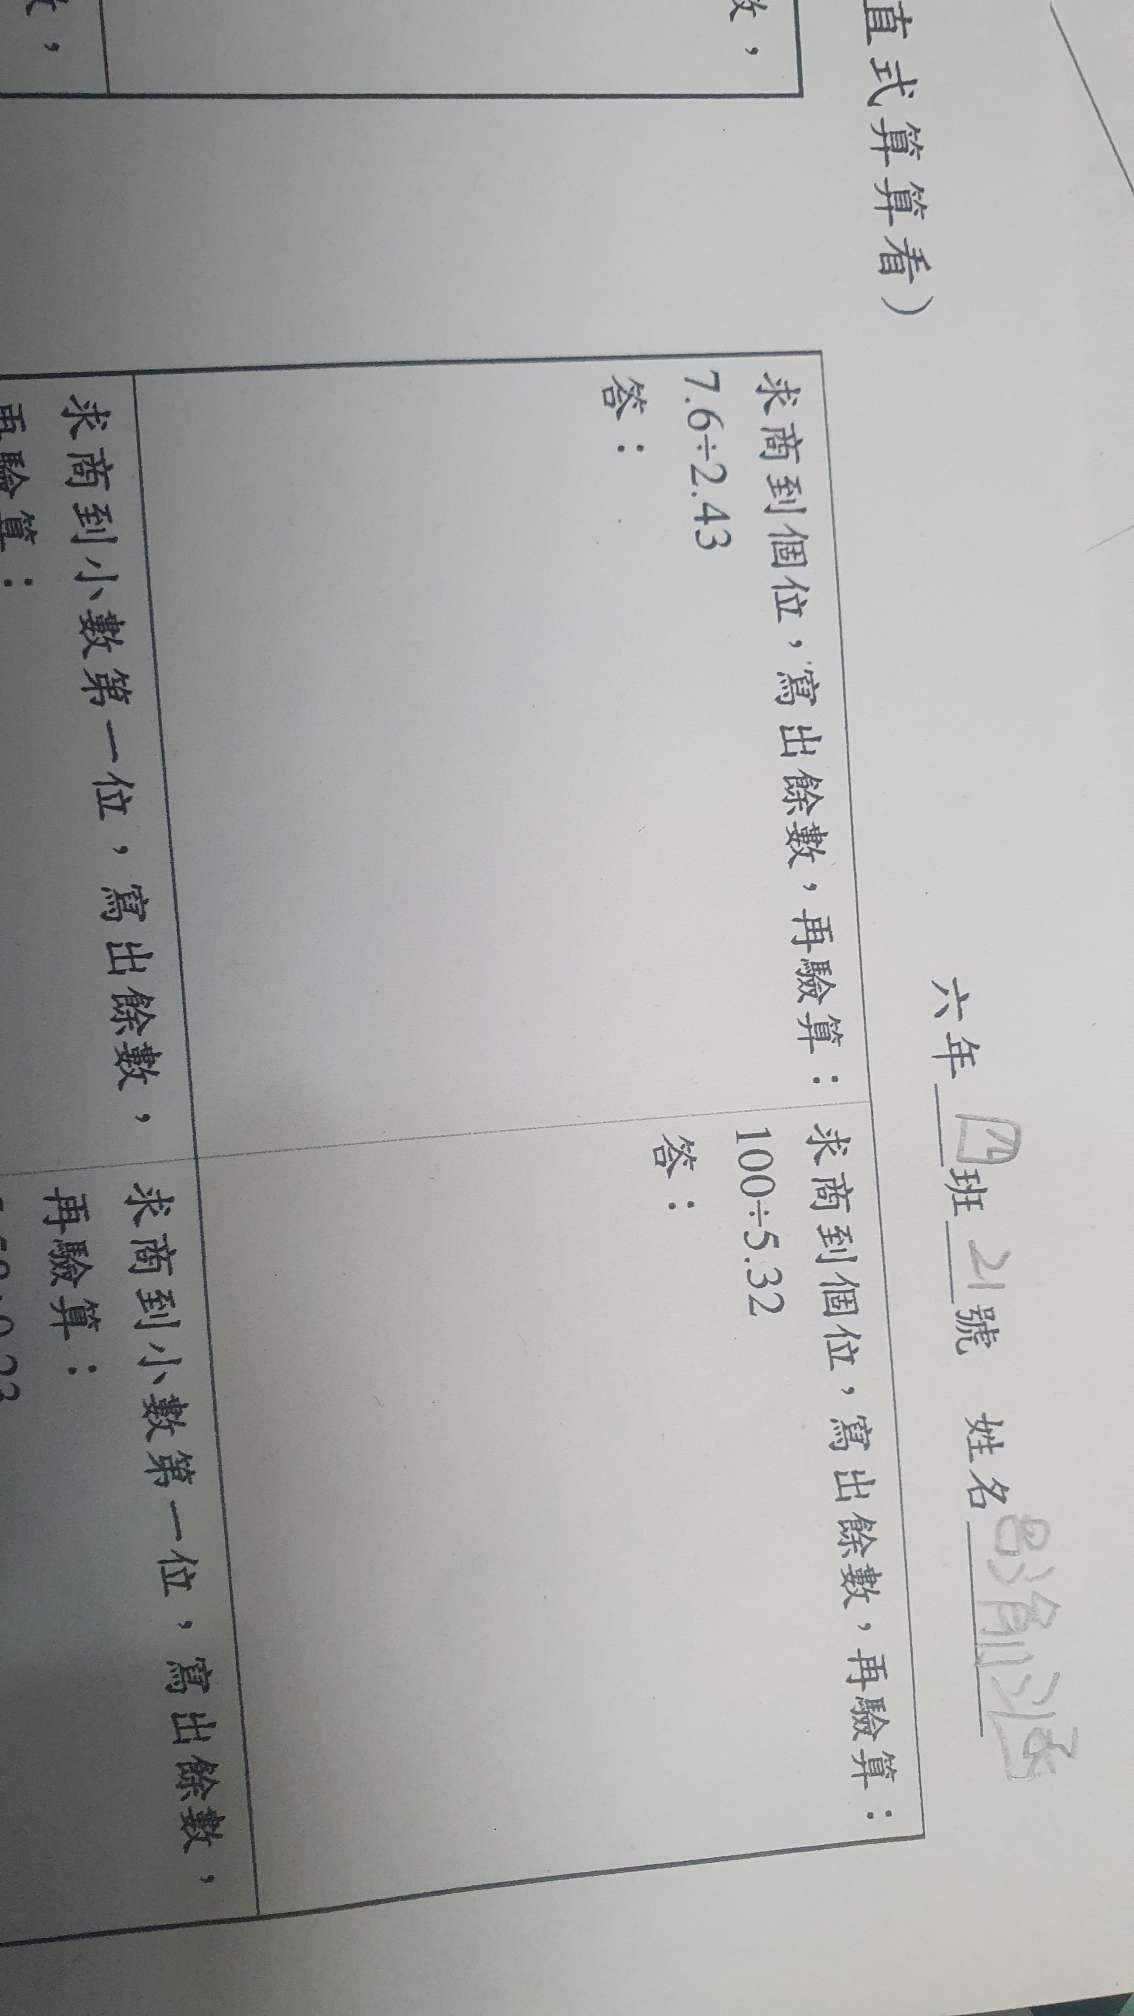 直式算算看）
六年四班21號 姓名
數，
求商到個位，寫出餘數，再驗算：
7.6÷2.43
答：
求商到個位，寫出餘數，再驗算：
100÷5.32
答：
求商到小數第一位，寫出餘數，
再驗算：
求商到小數第一位，寫出餘數，
再驗算：